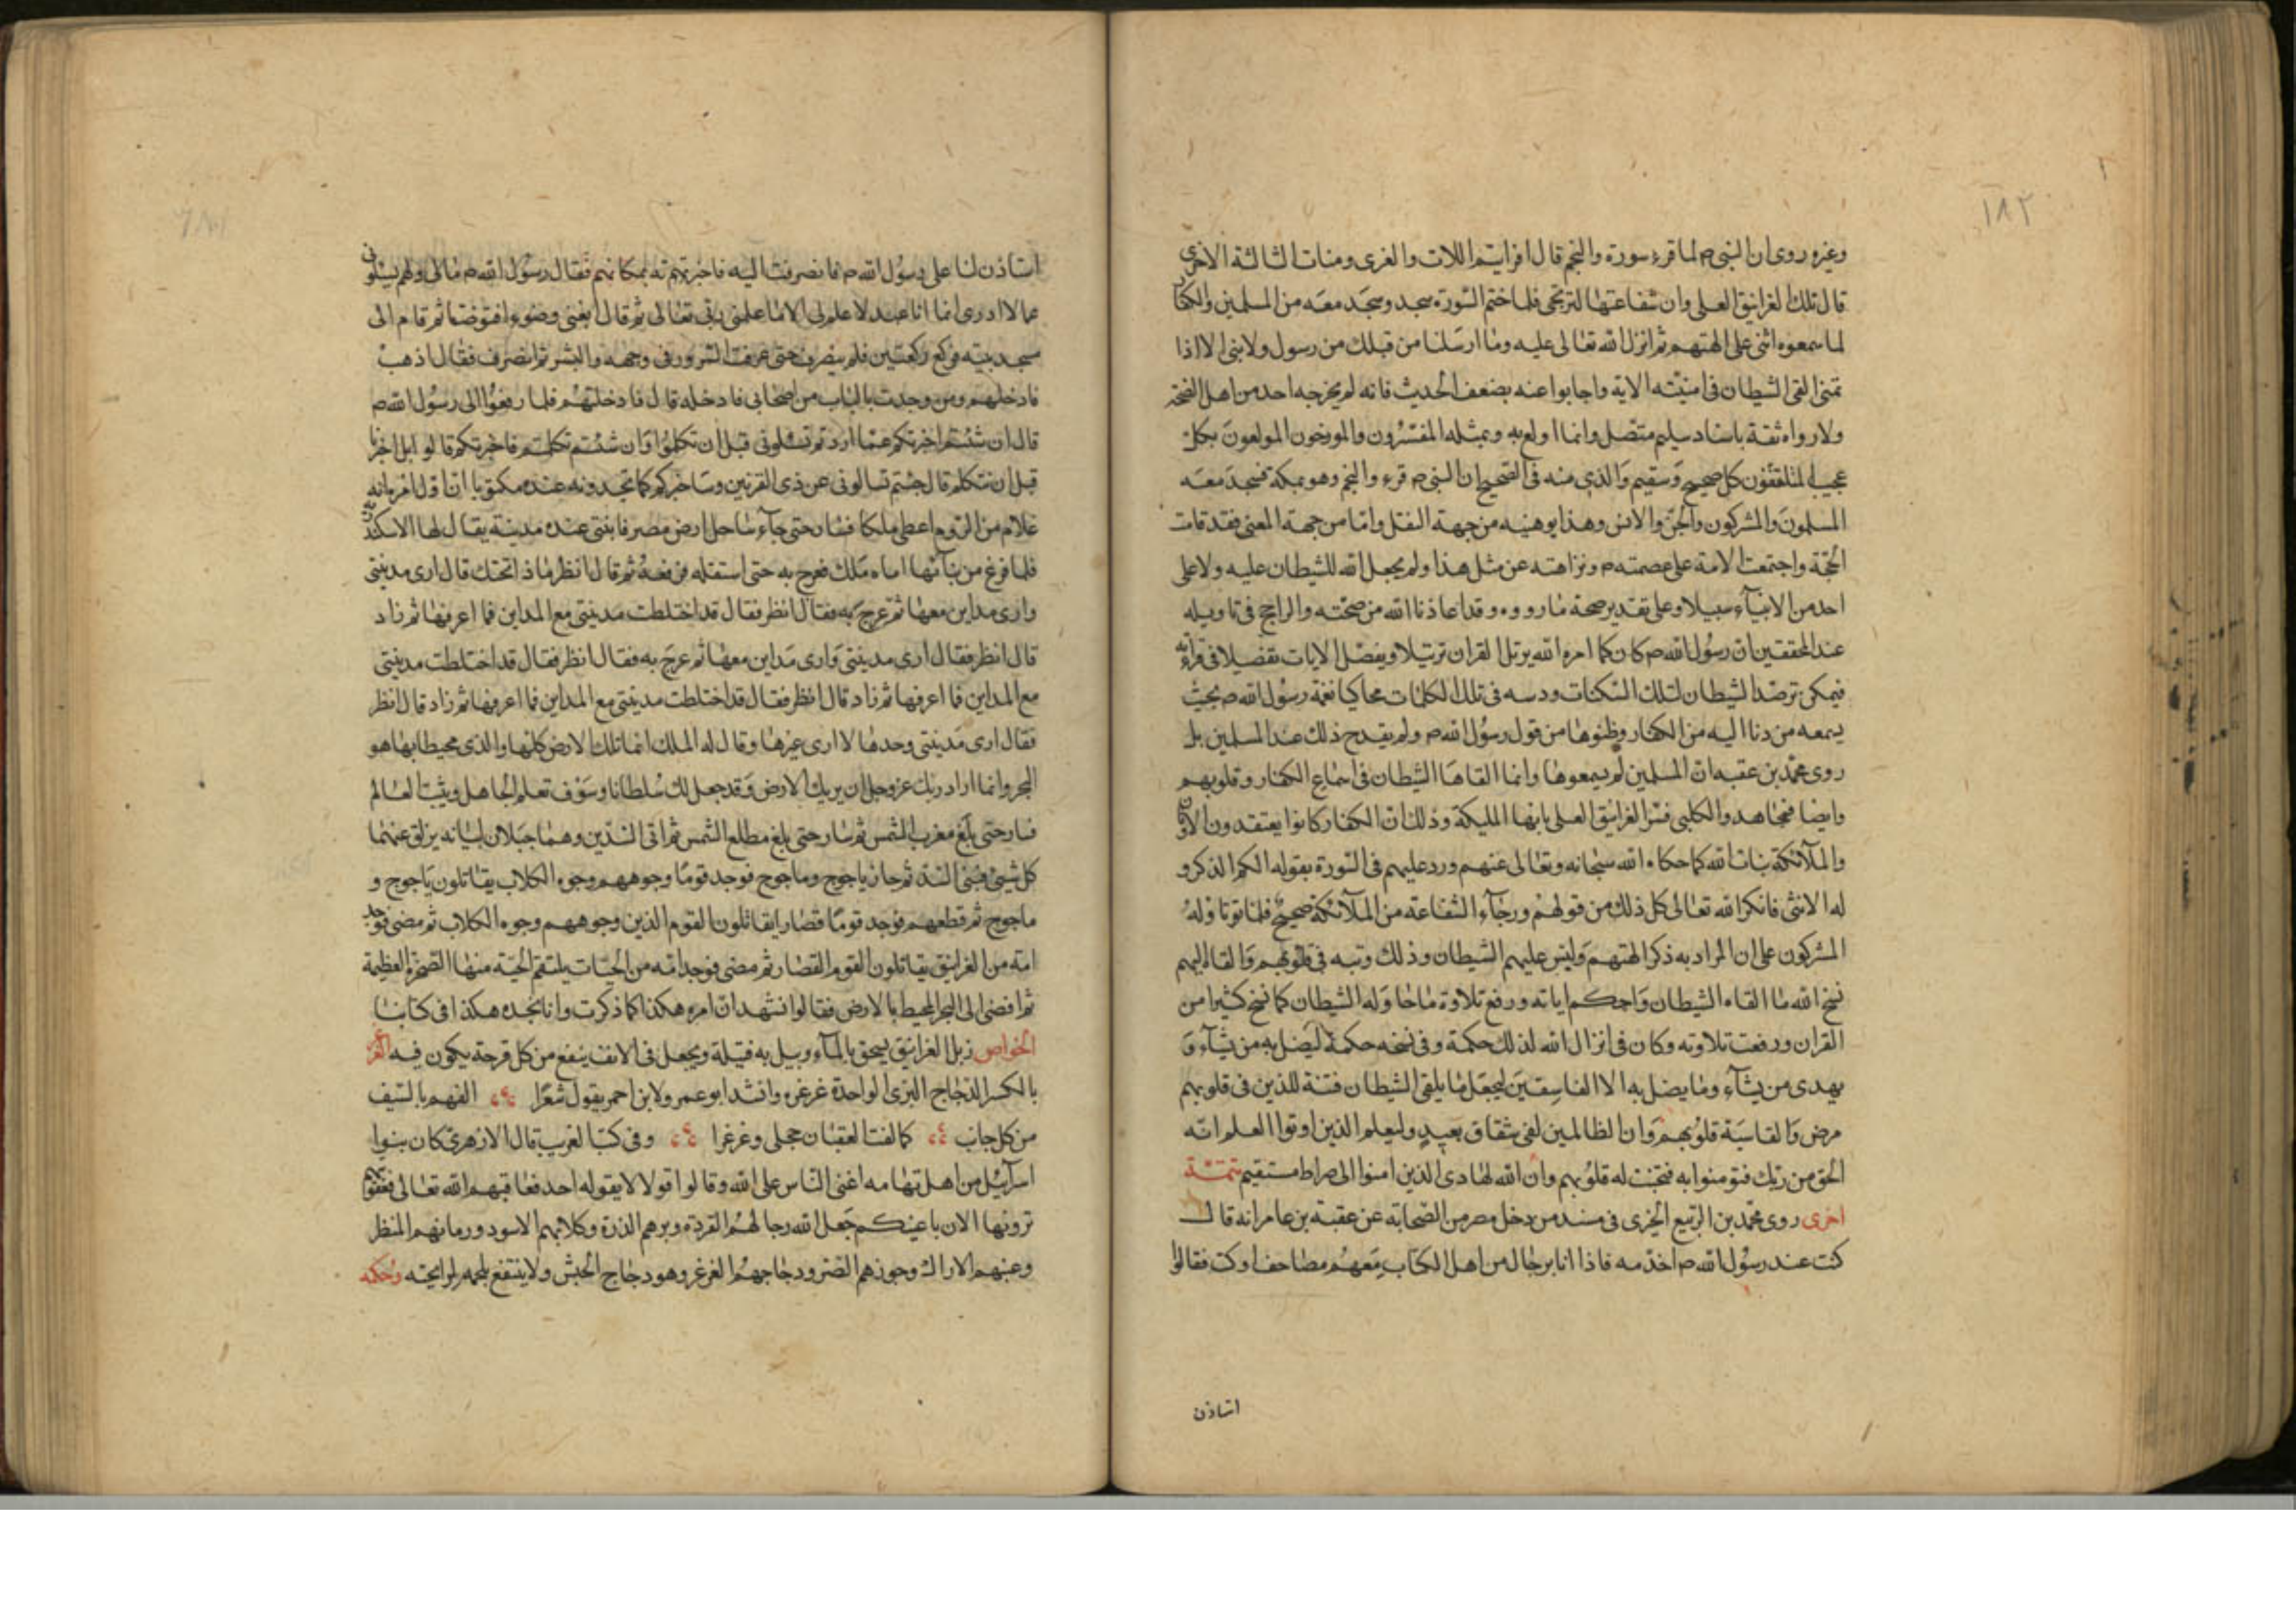 ١٨٢
وغيره روى ان النبى ص لما قرء سورة والنجم قال افرايتم اللات والعزى ومنات الثالثة الاخرى
قال تلك الغرانيق العلى وان شفاعتها لترتجى فلما ختم السورة سجد وسجد معه من المسلمين والكفار
لما سمعوه اثنى على الهتهم ثم انزل الله تعالى عليه وما ارسلنا من قبلك من رسول ولا نبى الا اذا
تمنى القى الشيطان فى امنيته الاية واجابوا عنه بضعف الحديث فانه لم يخرجه احد من اهل الصحة
ولا رواه ثقة باسناد سليم متصل وانما اولع به وبمثله المفسرون والمورخون المولعون بكل
عجيب المتلقفون كل صحيح وسقيم والذى منه فى الصحيح ان النبى ص قرء والنجم وهو بمكة فسجد معه
المسلمون والمشركون والجن والانس وهذا يوهنه من جهة النقل واما من جهة المعنى فقد قامت
الحجة واجتمعت الامة على عصمته ص ونزاهته عن مثل هذا ولم يجعل الله للشيطان عليه ولا على
احد من الانبياء سبيلا وعلى تقدير صحة ما رووه وقد اعاذنا الله من صحته والراجح فى تاويله
عند المحققين ان رسول الله ص كان كما امره الله يرتل القران ترتيلا ويفصل الايات تفصيلا فى قراءته
فيمكن ترصد الشيطان لتلك السكنات ودسه فى تلك الكلمات محاكيا نغمة رسول الله ص بحيث
يسمعه من دنا اليه من الكفار وظنوها من قول رسول الله ص ولم يقدح ذلك عند المسلمين بل
روى محمد بن عقبه ان المسلمين لم يسمعوها وانما القاها الشيطان فى اسماع الكفار وقلوبهم
وايضا فمجاهد والكلبى فسر الغرانيق العلى بانها المليكة وذلك ان الكفار كانوا يعتقدون الاوثان
والملآئكة بنات الله كما حكاه الله سبحانه وتعالى عنهم ورد عليهم فى السورة بقوله الكم الذكر و
له الانثى فانكر الله تعالى كل ذلك من قولهم ورجاء الشفاعة من الملآئكة صحيح فلما تاوله
المشركون على ان المراد به ذكر الهتهم ولبس عليهم الشيطان وذلك وتبه فى قلوبهم والقاه اليهم
نسخ الله ما القاه الشيطان واحكم اياته ورفع تلاوة ما حاوله الشيطان كما نسخ كثيرا من
القران ورفعت تلاوته وكان فى انزال الله لذلك حكمة وفى نسخه حكمة ليضل به من يشآء و
يهدى من يشآء وما يضل به الا الفاسقين ليجعل ما يلقى الشيطان فتنة للذين فى قلوبهم
مرض والقاسية قلوبهم وان الظالمين لفى شقاق بعيد وليعلم الذين اوتوا العلم انه
الحق من ربك فتومنوا به فتخبت له قلوبهم وان الله لهادى الذين امنوا الى صراط مستقيم تتمة
اخرى روى محمد بن الربيع الجيزى فى مسند من دخل مصر من الصحابة عن عقبة بن عامر انه قال
كنت عند رسول الله ص اخذمه فاذا انا برجال من اهل الكتاب معهم مصاحف او كتب فقالوا
استاذن
استاذن لنا على رسول الله ص فانصرفت اليه فاخبرته بمكانهم فقال رسول الله ص مالى ولهم يسئلونى
عما لا ادرى انما انا عبد لا علم لى الا ما علمنى ربى تعالى ثم قال ابغنى وضوءا فتوضا ثم قام الى
مسجد بيته فركع ركعتين فلم ينصرف حتى عرفت السرور فى وجهه والبشر ثم انصرف فقال اذهب
فادخلهم ومن وجدت بالباب من اصحابى فادخله قال فادخلتهم فلما رفعوا الى رسول الله ص
قال ان شئتم اخبرتكم عما اردتم تسئلونى قبل ان تكلموا وان شئتم تكلمتم فاخبرتكم قالوا بل اخبرنا
قبل ان نتكلم قال جئتم تسالونى عن ذى القرنين وساخبركم كما تجدونه عندكم مكتوبا ان اول امره انه
غلام من الروم اعطى ملكا فسار حتى جآء ساحل ارض مصر فابتنى عنده مدينة يقال لها الاسكندرية
فلما فرغ من بنآئها اتاه ملك فعرج به حتى استقله فرفعه ثم قال انظر ماذا تحتك قال ارى مدينتى
وارى مداين معها ثم عرج به فقال انظر فقال قد اختلطت مدينتى مع المداين فما اعرفها ثم زاد
قال انظر فقال ارى مدينتى وارى مداين معها ثم عرج به فقال انظر فقال قد اختلطت مدينتى
مع المداين فما اعرفها ثم زاد قال انظر فقال قد اختلطت مدينتى مع المداين فما اعرفها ثم زاد قال انظر
فقال ارى مدينتى وحدها لا ارى غيرها وقال له الملك انما تلك الارض كلها والذى محيطا بها هو
البحر وانما اراد ربك عز وجل ان يريك الارض وقد جعل لك سلطانا وسوف تعلم الجاهل ويثبت العالم
فسار حتى بلغ مغرب الشمس ثم سار حتى بلغ مطلع الشمس ثم اتى السدين وهما جبلان لينان يزلق عنهما
كل شىء فبنى السد ثم جاز ياجوج وماجوج فوجد قوما وجوههم وجوه الكلاب يقاتلون ياجوج و
ماجوج ثم قطعهم فوجد قوما قصارا يقاتلون القوم الذين وجوههم وجوه الكلاب ثم مضى فوجد
امة من الغرانيق يقاتلون القوم القصار ثم مضى فوجد امة من الحيات يلتقم الحية منها الصخرة العظيمة
ثم افضى الى البحر المحيط بالارض فقالوا نشهد ان امره هكذا كما ذكرت وانا نجده هكذا فى كتابنا
الخواص زبل الغرانيق يسحق بالمآء ويبل به فتيلة ويجعل فى الانف ينفع من كل قرحة يكون فيه الغرغر
بالكسر الدجاج البرى الواحدة غرغره وانشد ابو عمرو لابن احمر يقول شعرا الفهم بالسيف
من كل جانب كما لفت العقبان حجلى وغرغرا وفى كتاب الغريب قال الازهرى كان بنوا
اسرآئيل من اهل تهامه اغنى الناس على الله وقالوا قولا لا يقوله احد فعاقبهم الله تعالى فعقوبتهم
ترونها الان باعينكم جعل الله رجالهم القردة وبرهم الذرة وكلابهم الاسود ورمانهم المنظل
وعنبهم الاراك وجوزهم الضرو ودجاجهم الغرغر وهو دجاج الحبش ولا ينتفع بلحمه لرايحته وحكمه